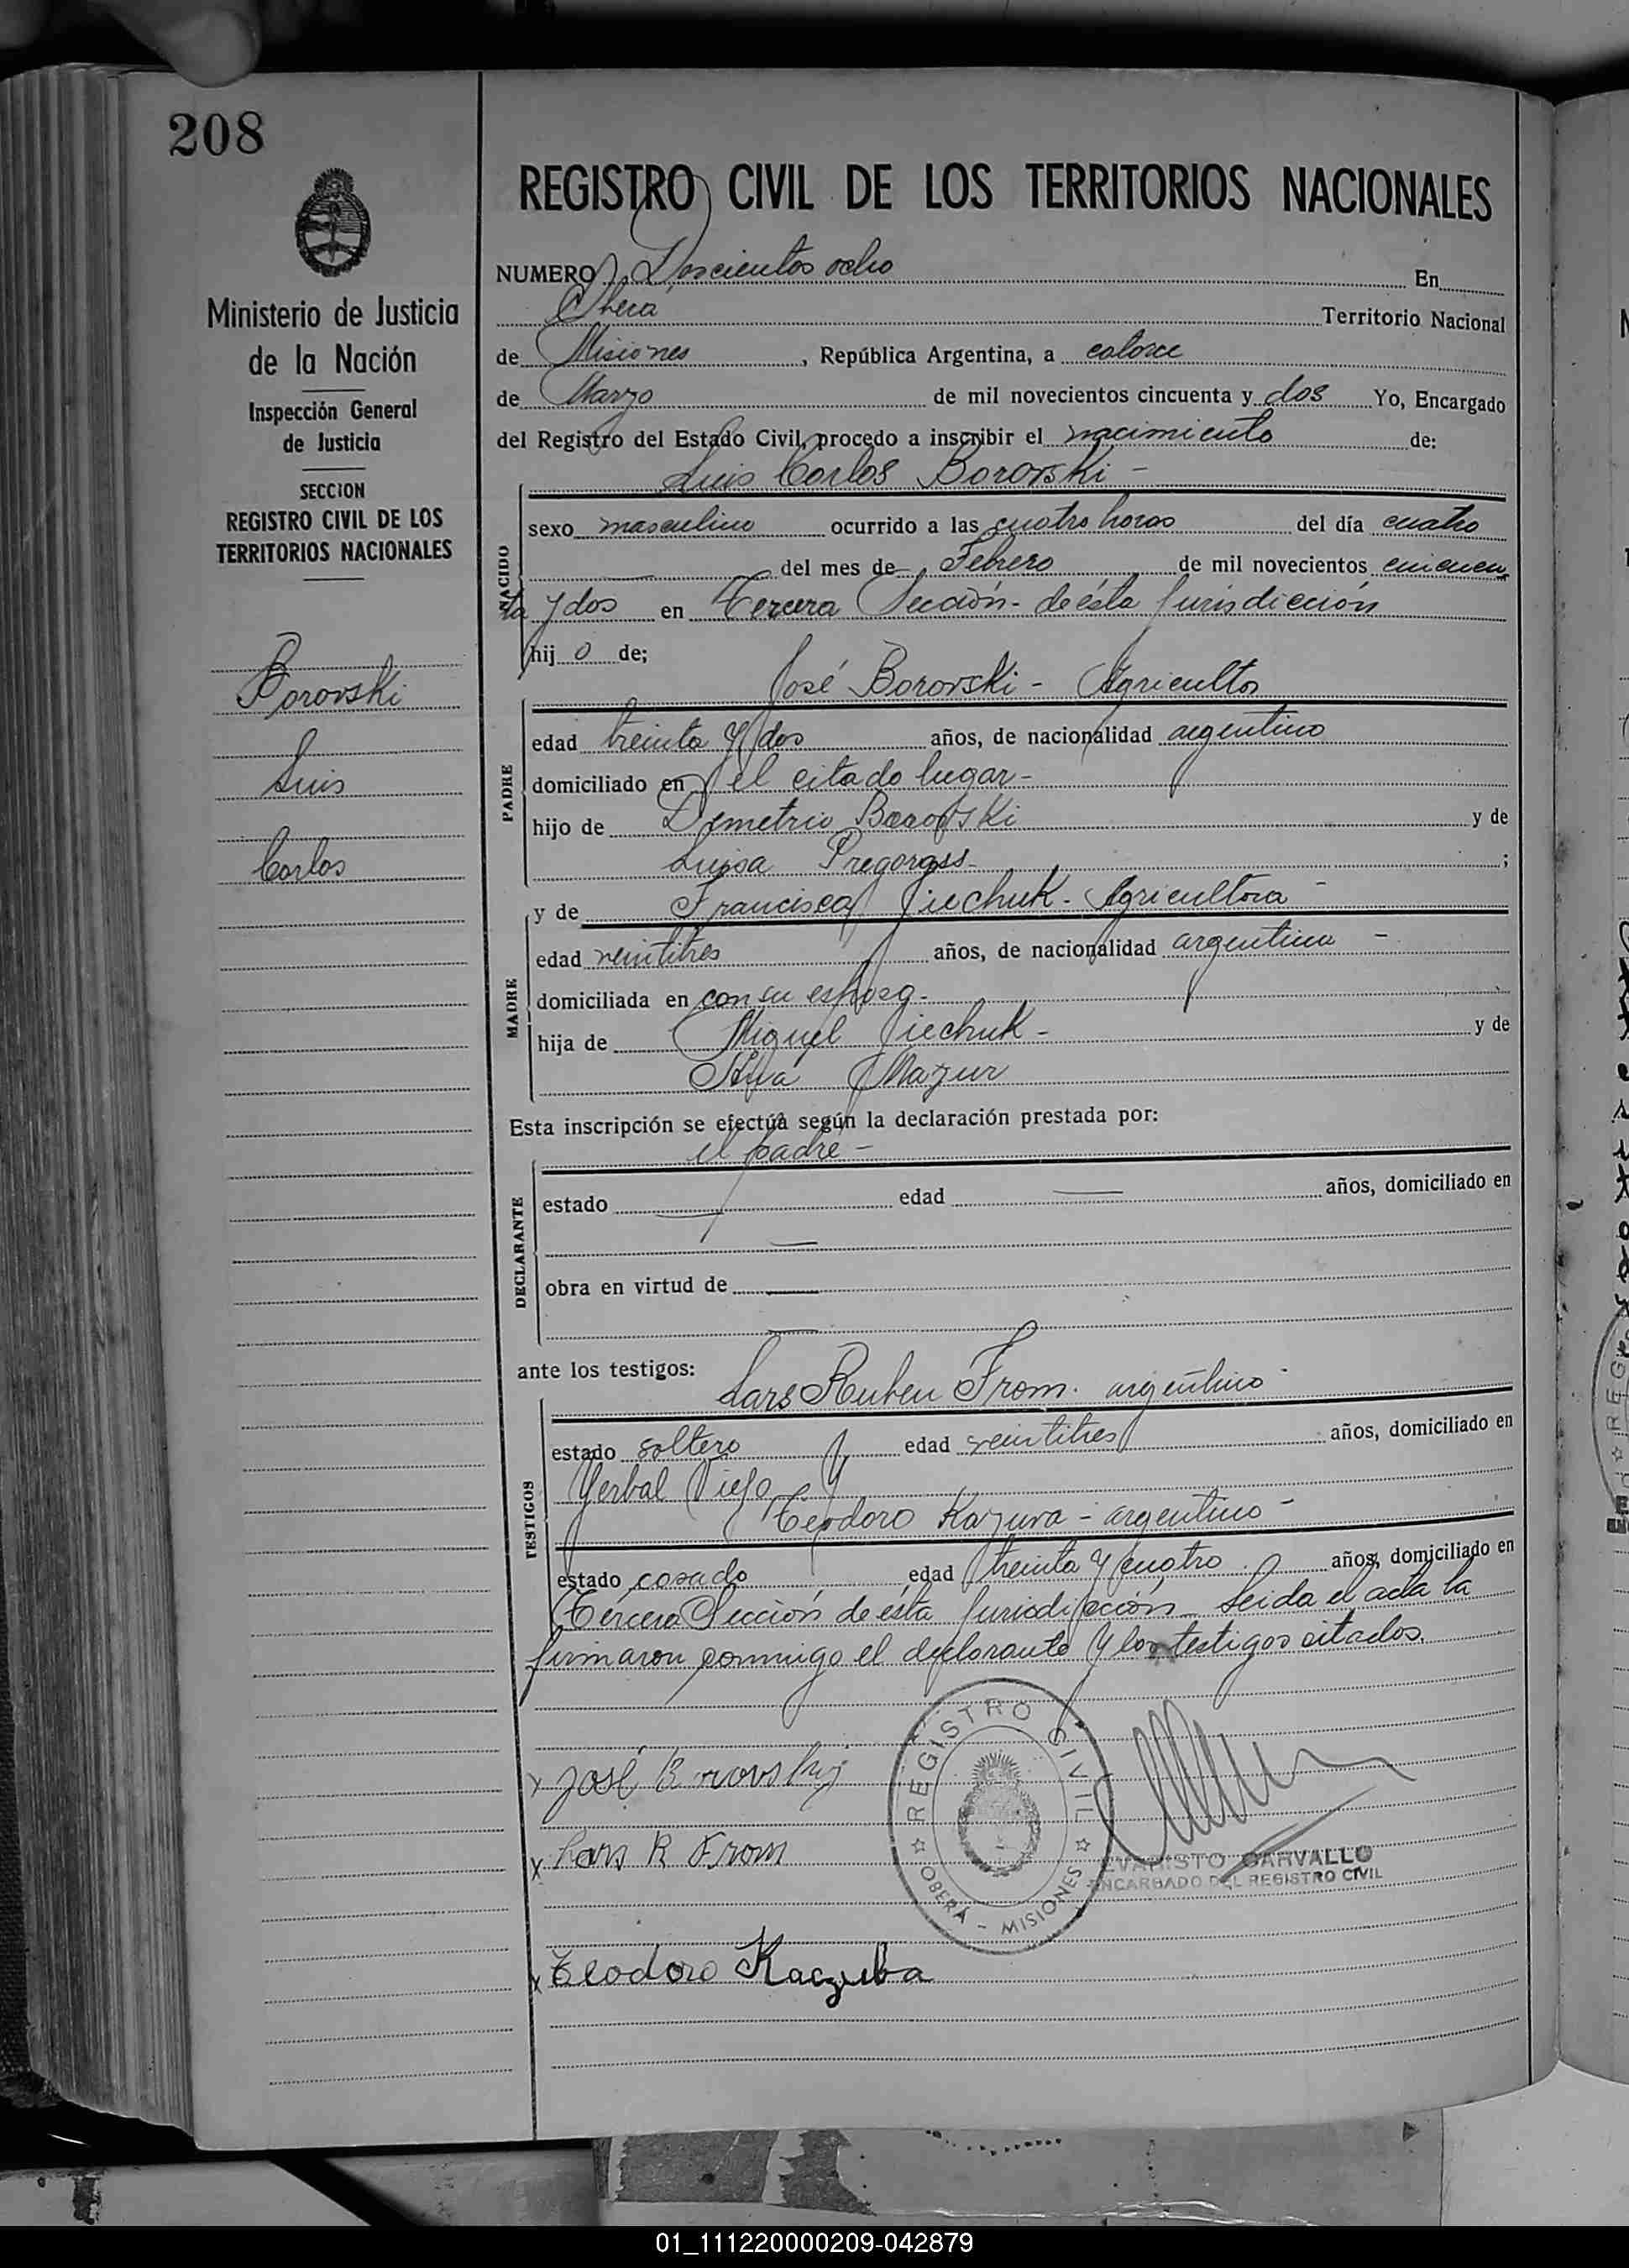 208
Ministerio de Justicia
de la Nación
Inspección General
de Justicia
SECCION
REGISTRO CIVIL DE LOS
TERRITORIOS NACIONALES
Borovski
Luis
Carlos
REGISTRO CIVIL DE LOS TERRITORIOS NACIONALES
NUMERO Doscientos ocho En
Oberá Territorio Nacional
de Misiones, República Argentina, a catorce
de Marzo de mil novecientos cincuenta y dos Yo, Encargado
del Registro del Estado Civil, procedo a inscribir el nacimiento de:
Luis Carlos Borovski -
NACIDO
sexo masculino ocurrido a las cuatro horas del día cuatro
del mes de Febrero de mil novecientos cincuen
ta y dos en Tercera Sección - de ésta Jurisdicción
hijo de;
José Borovski - Agricultor
PADRE
edad treinta y dos años, de nacionalidad argentino
domiciliado en el citado lugar -
hijo de Demetrio Borovski y de
Luisa ;
y de Francisca Jiechuk - Agricultora -
MADRE
edad veintitres años, de nacionalidad argentina -
domiciliada en con su esposo -
hija de Miguel Jiechuk - y de
Ana Mazur
Esta inscripción se efectúa según la declaración prestada por:
el padre -
DECLARANTE
estado — edad — años, domiciliado en
—
obra en virtud de —
—
ante los testigos:
Lars Ruben From. argentino -
TESTIGOS
estado soltero edad veintitres años, domiciliado en
Yerbal Viejo y
Teodoro Kazuva - argentino -
estado casado edad treinta y cuatro años, domiciliado en
Tercera Sección de ésta Jurisdicción - Leida el acta la
firmaron conmigo el declarante y los testigos citados.
x José Borovskij
x Lars R From
x Teodoro Kaczuba
REGISTRO CIVIL
OBERÁ - MISIONES
EVARISTO CARVALLO
ENCARGADO DEL REGISTRO CIVIL
01_111220000209-042879